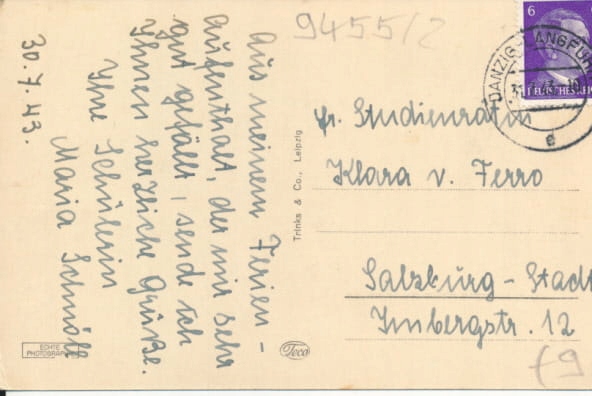 9455/2
30.7.43.
Aus meinem Ferien-
aufenthalt, der mir sehr
gut gefällt, sende ich
Ihnen herzliche Grüße.
Ihre Schülerin
Maria
Trinks & Co., Leipzig
ECHTE
PHOTOGRAPHIE
Teco
6
DEUTSCHES REICH
DANZIG-LANGFUHR
e
Fr. Studienrätin
Klara v. Ferro
Salzburg-Stadt
Imbergstr. 12
f9